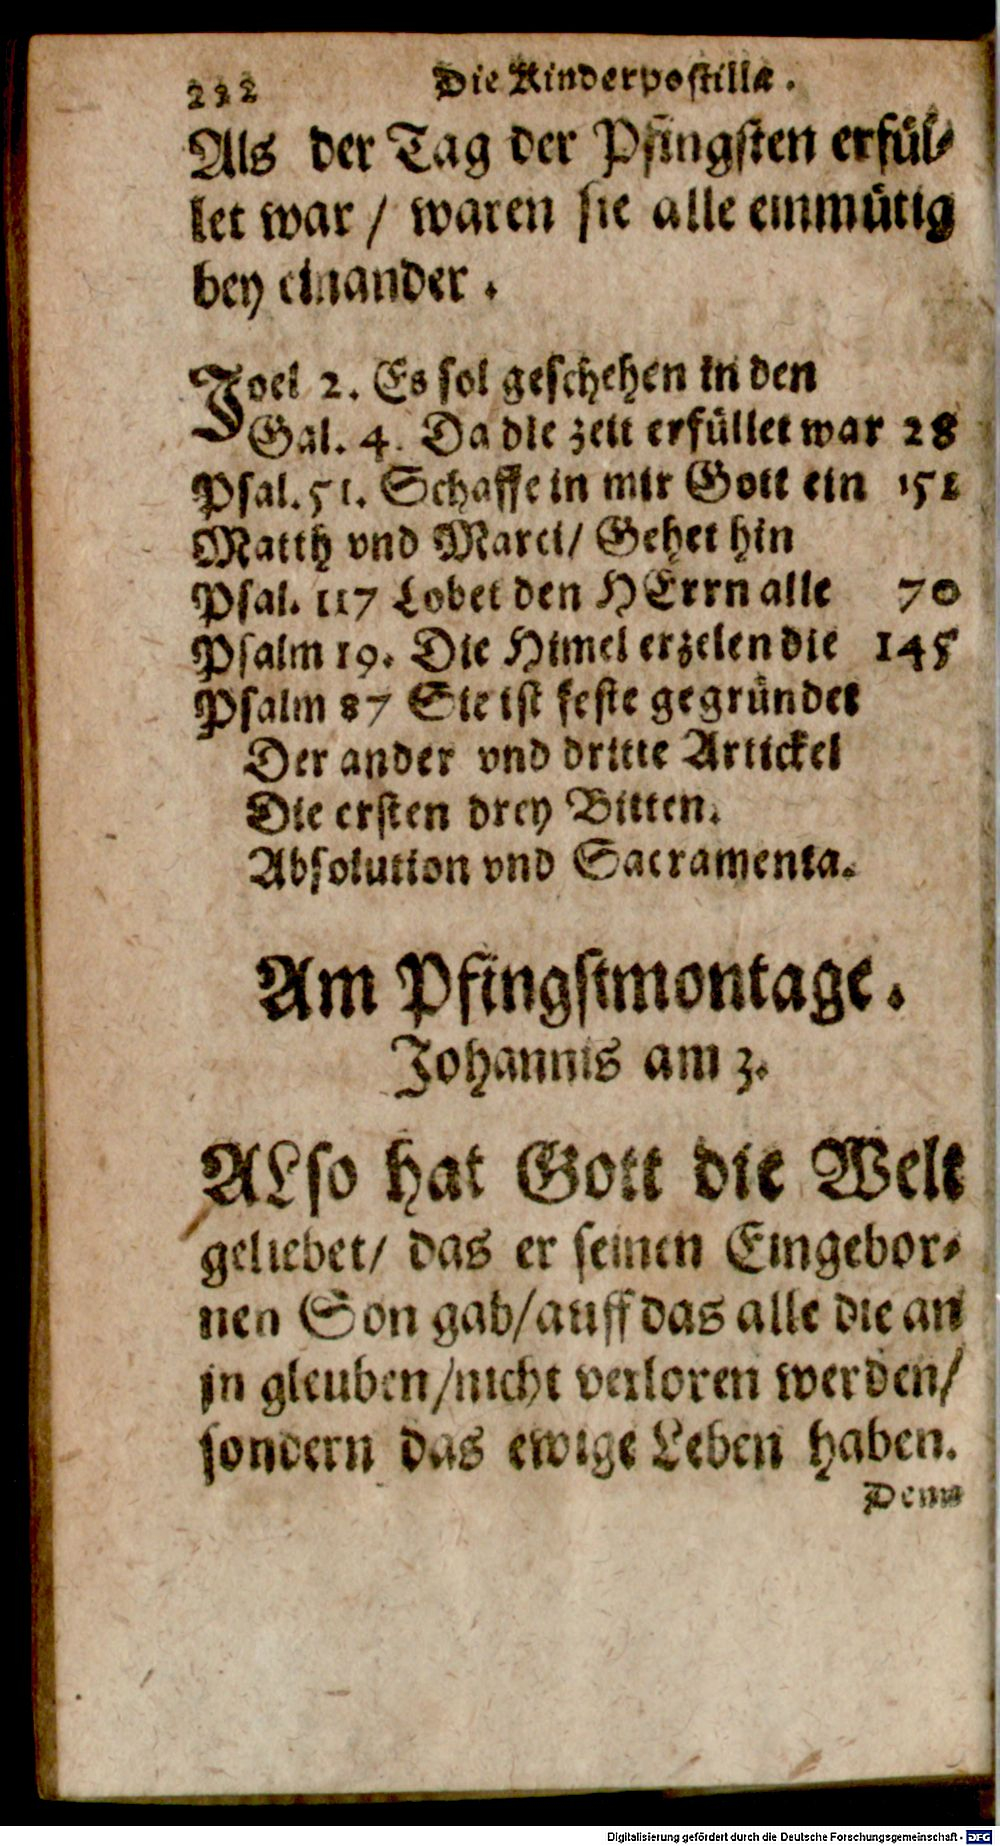 232 Die Kinderpostilla.
Als der Tag der Pfingsten erfül-
let war / waren sie alle einmütig
bey einander.
Joel 2. Es sol geschehen in den
Gal. 4. Da die zeit erfüllet war 28
Psal. 51. Schaffe in mir Gott ein 151
Matth vnd Marci/ Gehet hin
Psal. 117 Lobet den HErrn alle 70
Psalm 19. Die Himel erzelen die 145
Psalm 87 Sie ist feste gegründet
Der ander vnd dritte Artickel
Die ersten drey Bitten.
Absolution vnd Sacramenta.
Am Pfingstmontage.
Johannis am 3.
ALso hat Gott die Welt
geliebet/ das er seinen Eingebor-
nen Son gab/auff das alle die an
jn gleuben/nicht verloren werden/
sondern das ewige Leben haben.
Denn
Digitalisierung gefördert durch die Deutsche Forschungsgemeinschaft - DFG